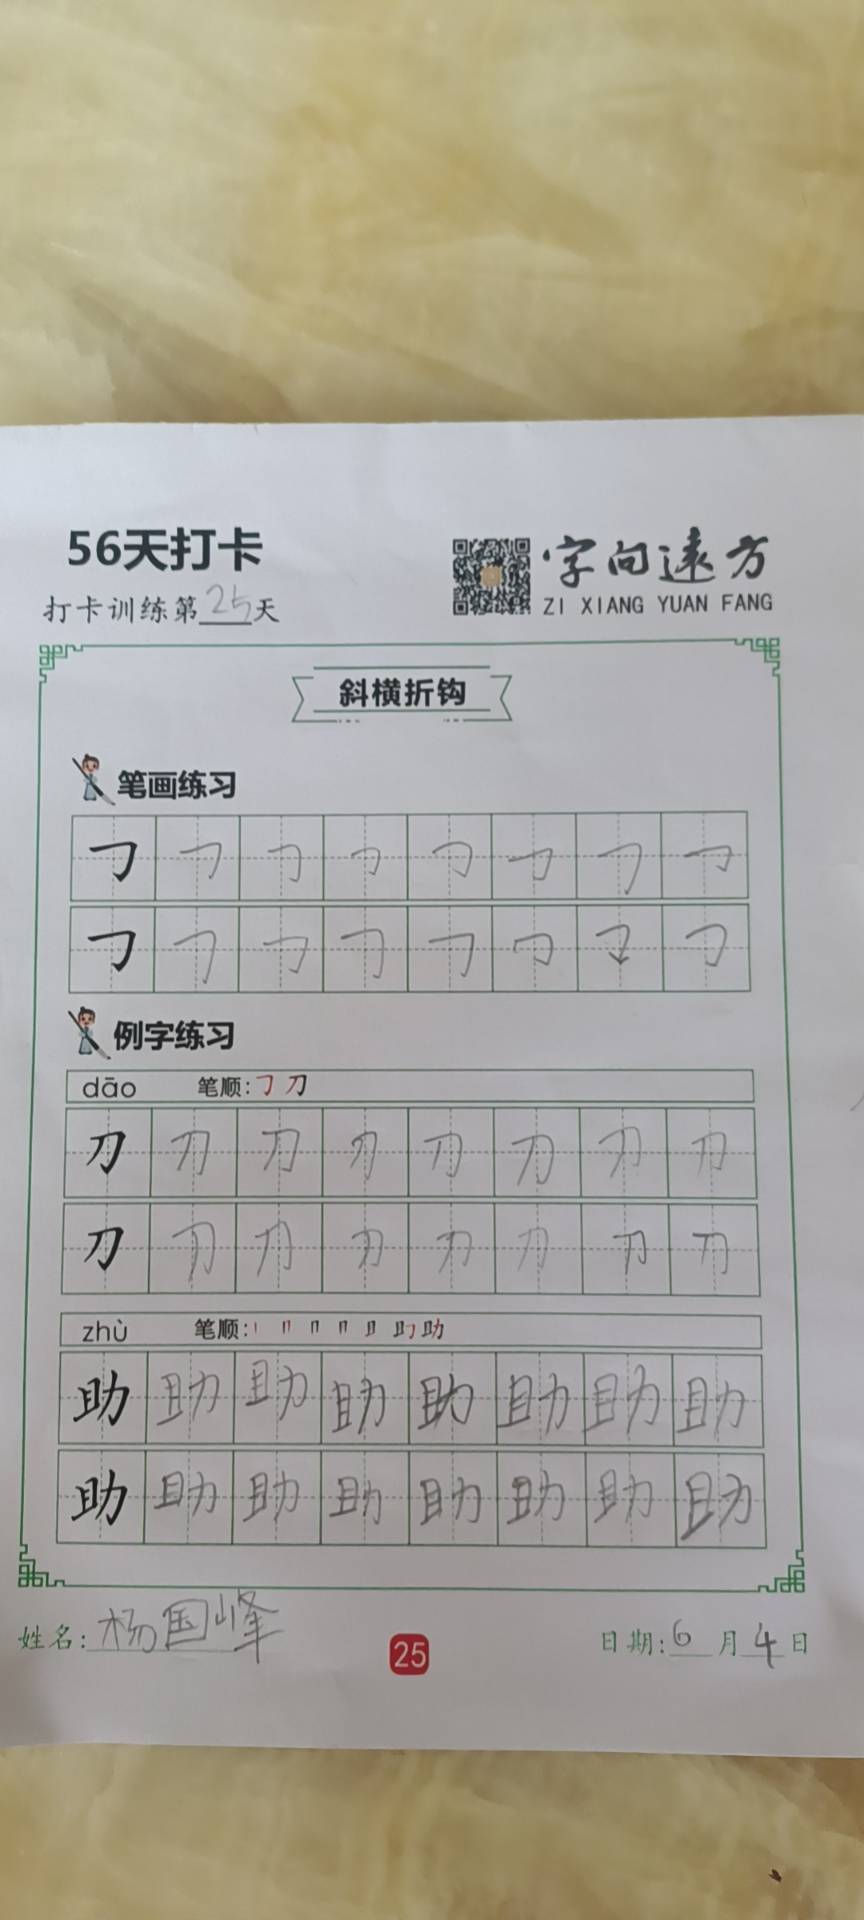 56天打卡
字向远方
打卡训练第25天
ZI XIANG YUAN FANG
斜横折钩
笔画练习
㇆ ㇆ ㇆ ㇆ ㇆ ㇆ ㇆ ㇆
㇆ ㇆ ㇆ ㇆ ㇆ ㇆ ㇆ ㇆
例字练习
dāo 笔顺:㇆ 刀
刀 刀 刀 刀 刀 刀 刀 刀
刀 刀 刀 刀 刀 刀 刀 刀
zhù 笔顺: 助
助 助 助 助 助 助 助 助
助 助 助 助 助 助 助 助
姓名:杨国峰
25
日期:6月4日